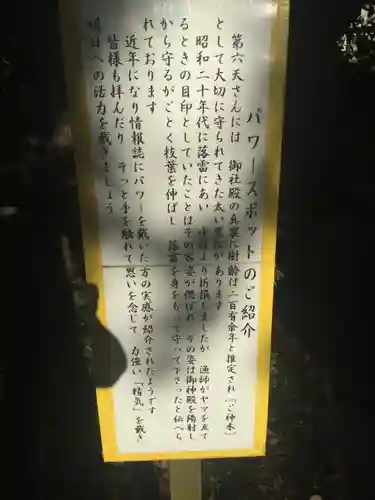 パワースポットのご紹介
第六天さんには 御社殿の真裏に樹齢は二百有余年と推定され「ご神木」
として大切に守られてきた太い黒松があります
昭和二十年代に落雷にあい 中程より折損しましたが 漁師がヤマを立て
るときの目印としていたことはその姿が偲ばれ その姿は御神殿を陽射し
から守るがごとく枝葉を伸ばし 落雷を身をもって守って下さったと伝へら
れております
近年になり情報誌にパワーを戴いた方の実感が紹介されたようです
皆様も拝んだり そっと手を触れて思いを念じて 力強い「精気」を戴き
明日への活力を戴きましょう